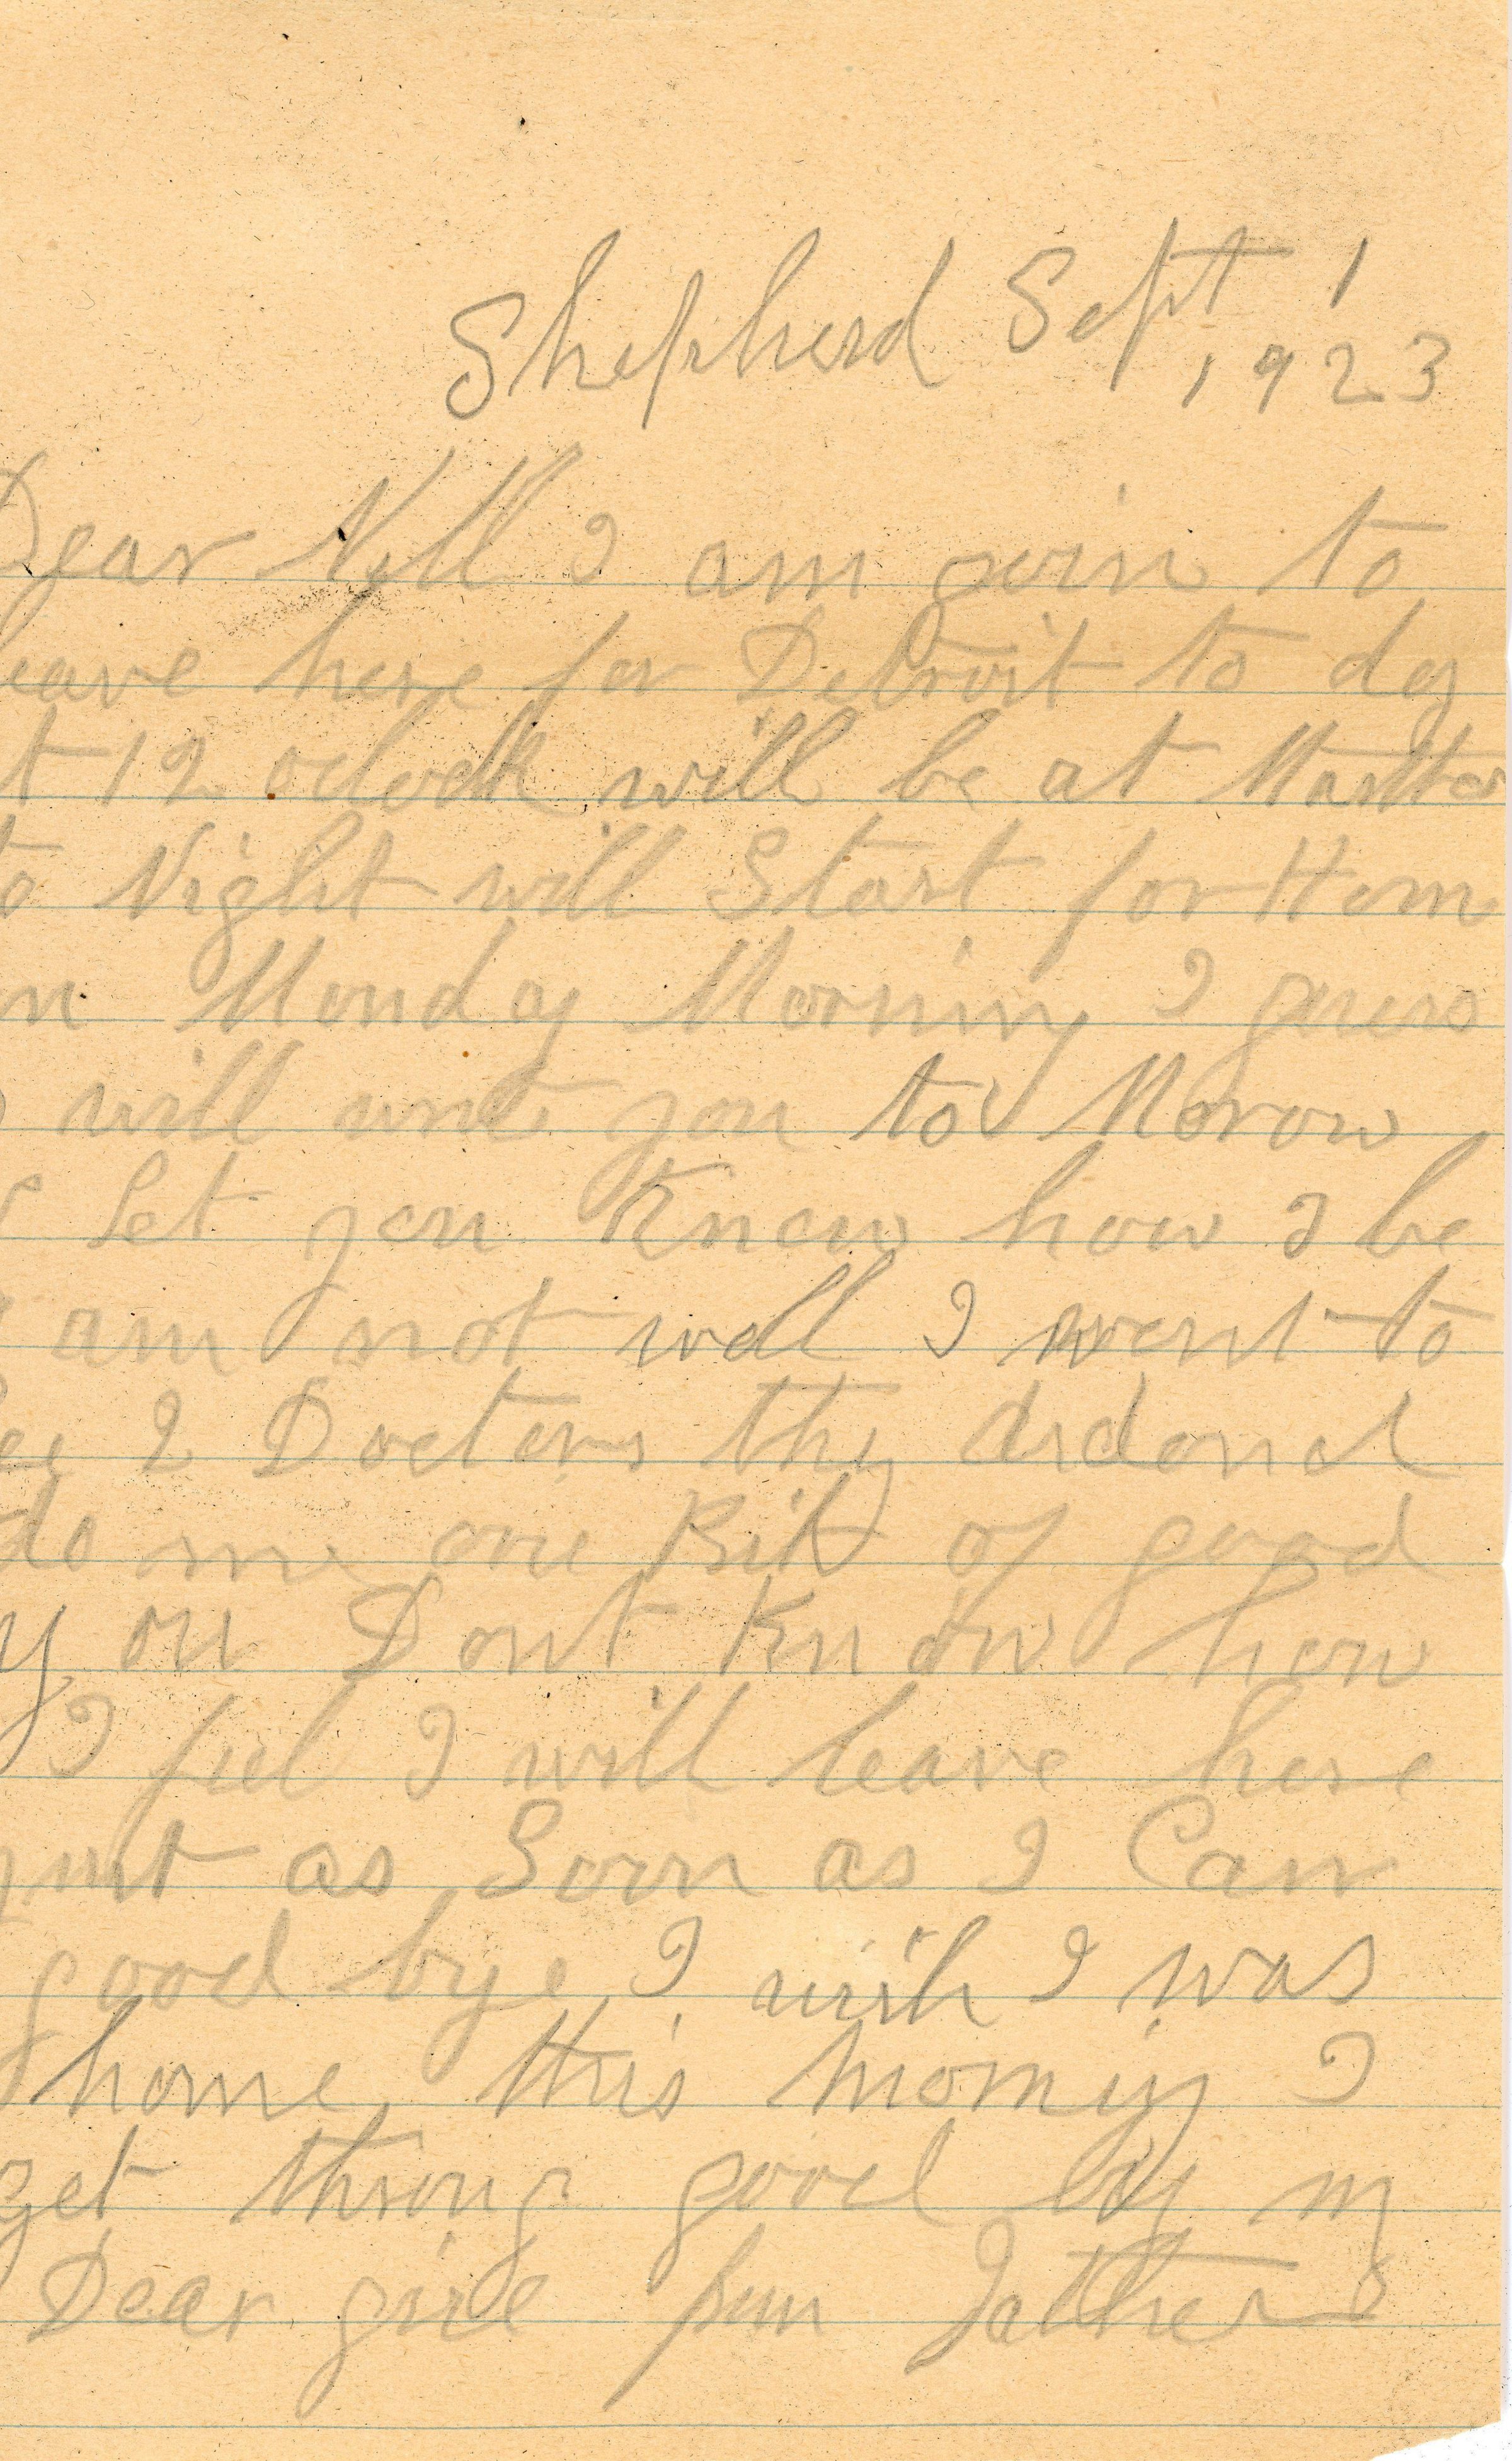 Shepherd Sept 1
1923
Dear Nell I am goin to
leave here for Detroit to day
at 12 oclock will be at
to Night will Start for Hom
on Monday Morning I guess
I will write you to Morow
& Let you Know how I be
I am not well I went to
See 2 Doctors they didond
do me one Bit of good
you Dont Know how
I feel I will leave here
just as Soon as I Can
good bye I wish I was
home this morning I
get throug good by my
Dear girl from Father